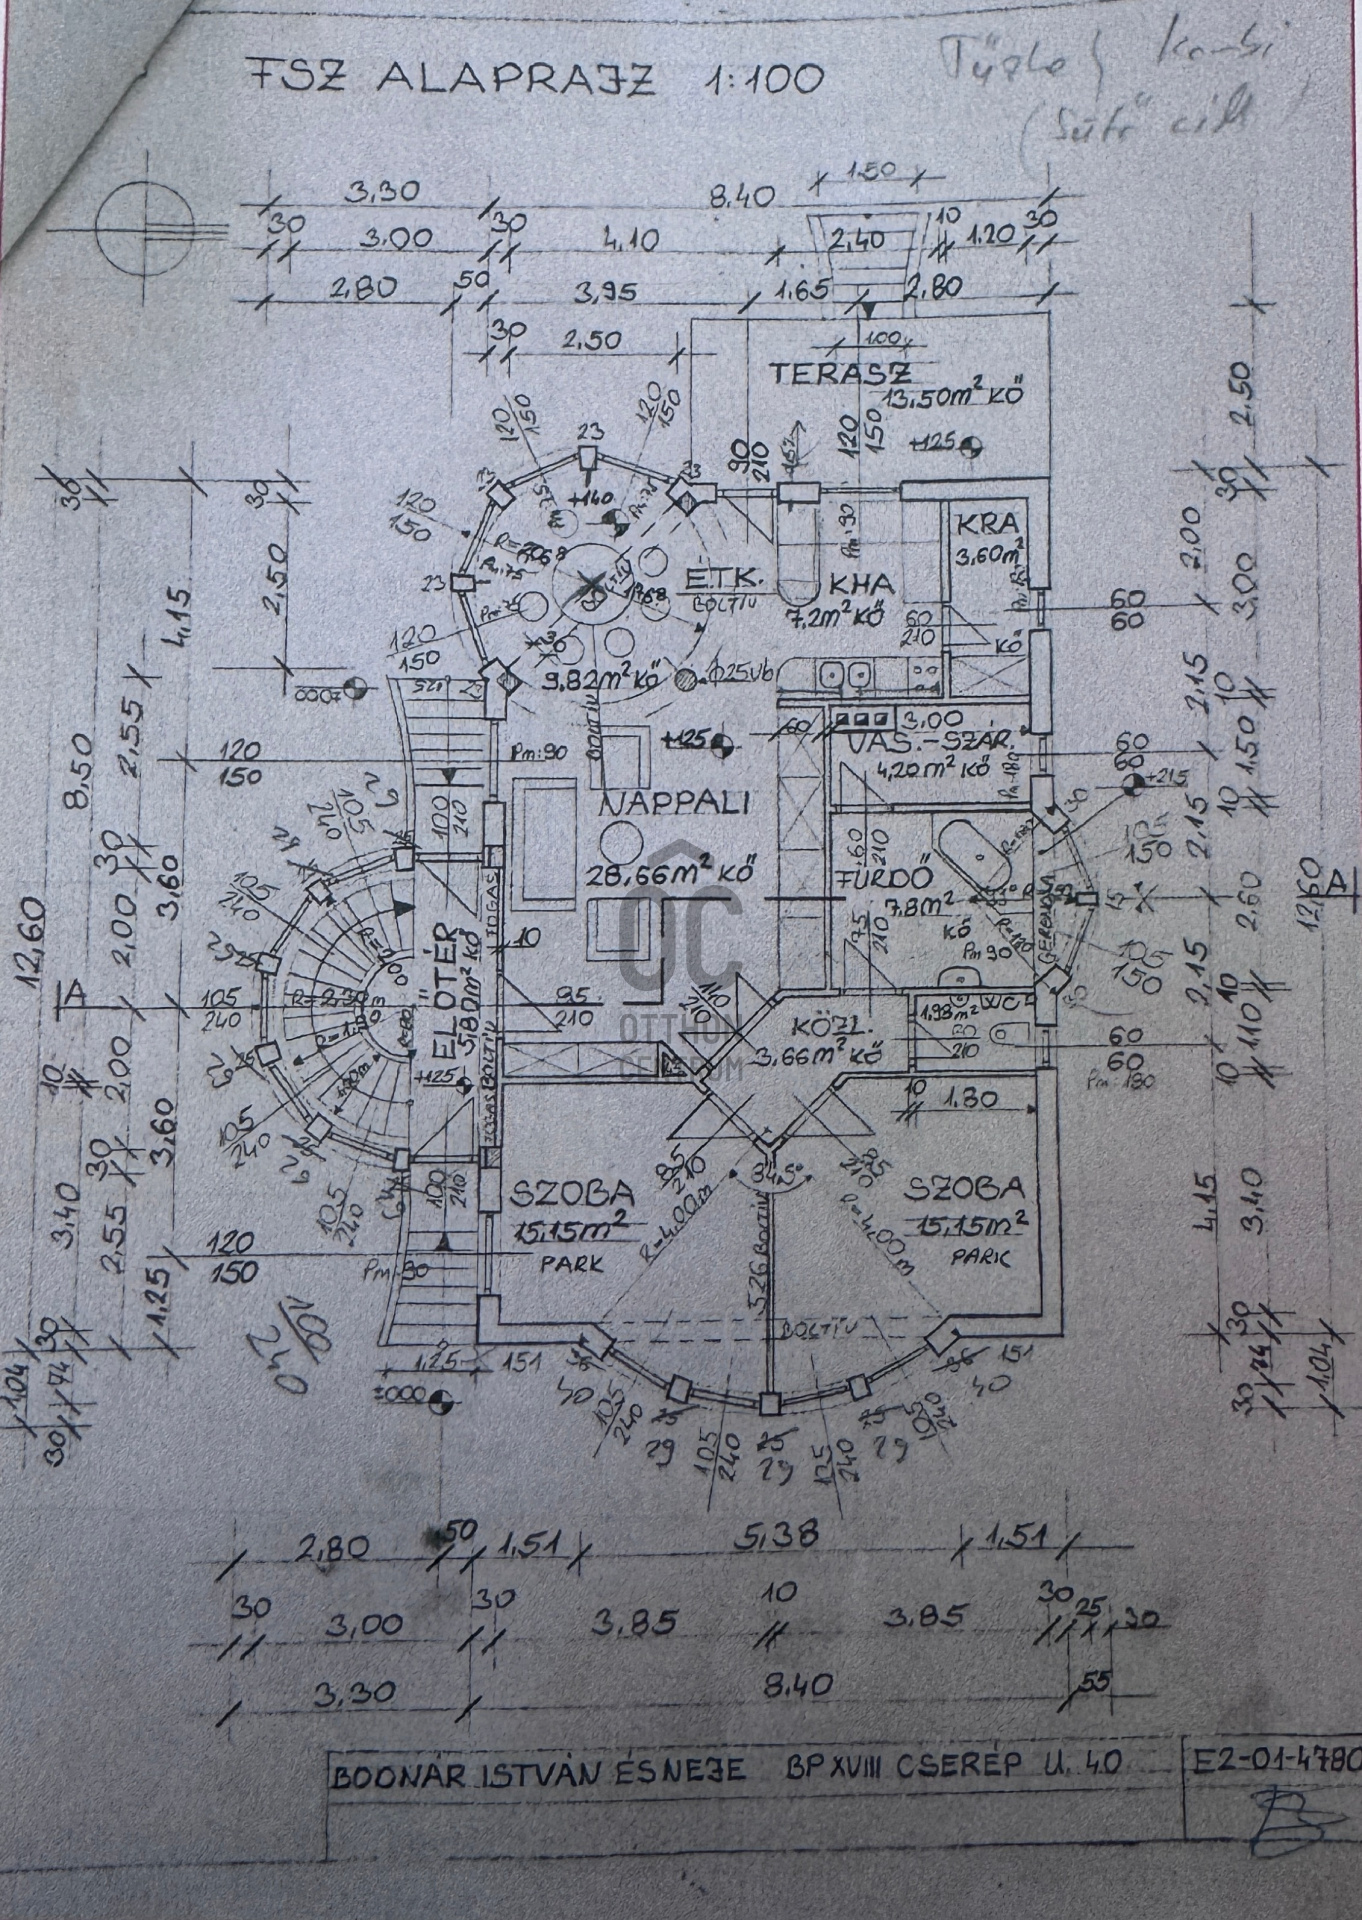 FSZ ALAPRAJZ 1:100
3,30
8,40
1.50
30
3,00
30
4,10
2,40
10
1,20
30
2,80
50
3,95
1,65
2,80
30
2,50
100
TERASZ
13,50m² KŐ
+125
120
150
120
150
23
90
210
120
150
+140
KRA
3,60m²
120
150
23
ÉTK.
BOLTÍV
KHA
7,2m² KŐ
Pm:90
60
210
KŐ
60
60
120
150
9,82m² KŐ
φ25vb
±000
Pm:90
BOLTÍV
+125
60
3,00
VAS.-SZÁR.
4,20m² KŐ
Pm:180
60
60
+215
120
150
NAPPALI
28,66m² KŐ
100
210
60
210
FÜRDŐ
7,8m²
KŐ
Pm 90
75
210
GERENDA
105
150
105
150
15
105
240
105
240
105
240
105
240
105
240
ELŐTÉR
5,80m² KŐ
FOGAS
FOGAS
BOLTÍV
10
95
210
110
210
KÖZL.
3,66m² KŐ
1,98m²
WC
80
210
60
60
Pm:180
+125
10
1.80
OC
OTTHON
CENTRUM
SZOBA
15,15m²
PARK
SZOBA
15,15m²
PARK
95
210
94,5°
R=4,00m
R=4,00m
526 BOLTÍV
BOLTÍV
100
210
120
150
Pm:90
1,25
151
±000
151
40
40
105
240
29
105
240
29
105
240
29
105
240
30
30
2,50
4,15
2,55
8,50
30
2,00
3,60
12,60
A
10
2,00
3,60
30
3,40
2,55
1,25
30
74
1,04
30
2,50
30
2,00
3,00
2,15
10
1,50
10
2,15
2,60
12,60
A
2,15
10
1,10
10
4,15
3,40
30
74
30
1,04
2,80
50
1,51
5,38
1,51
30
3,00
30
3,85
10
3,85
30
25
30
3,30
8,40
55
BODNÁR ISTVÁN ÉS NEJE BP XVIII CSERÉP U. 40
E2-01-4780